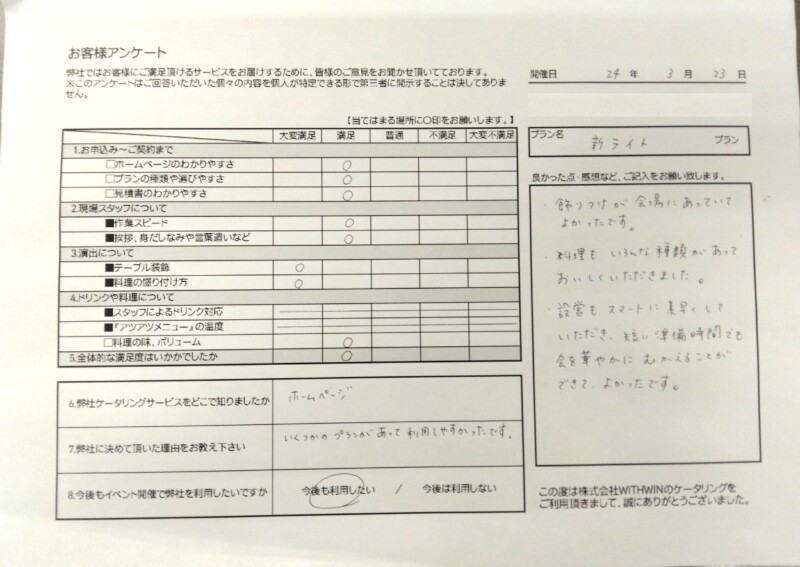 お客様アンケート
弊社ではお客様にご満足頂けるサービスをお届けするために、皆様のご意見をお聞かせ頂いております。
※このアンケートはご回答いただいた個々の内容を個人が特定できる形で第三者に開示することは決してありま
せん。
開催日 24 年 3 月 23 日
【当てはまる場所に○印をお願いします。】
大変満足 満足 普通 不満足 大変不満足
1.お申込み～ご契約まで
□ホームページのわかりやすさ ○
□プランの種類や選びやすさ ○
□見積書のわかりやすさ ○
2.現場スタッフについて
■作業スピード ○
■挨拶、身だしなみや言葉遣いなど ○
3.演出について
■テーブル装飾 ○
■料理の盛り付け方 ○
4.ドリンクや料理について
■スタッフによるドリンク対応
■『アツアツメニュー』の温度
□料理の味、ボリューム ○
5.全体的な満足度はいかがでしたか ○
6.弊社ケータリングサービスをどこで知りましたか ホームページ
7.弊社に決めて頂いた理由をお教え下さい いくつかのプランがあって利用しやすかったです。
8.今後もイベント開催で弊社を利用したいですか 今後も利用したい / 今後は利用しない
プラン名 新ライト プラン
良かった点・感想など、ご記入をお願い致します。
・飾りつけが会場にあっていて
よかったです。
・料理もいろんな種類があって
おいしくいただきました。
・設営もスマートに素早くして
いただき、短い準備時間でも
会を華やかにむかえることが
できて、よかったです。
この度は株式会社WITHWINのケータリングを
ご利用頂きまして、誠にありがとうございました。